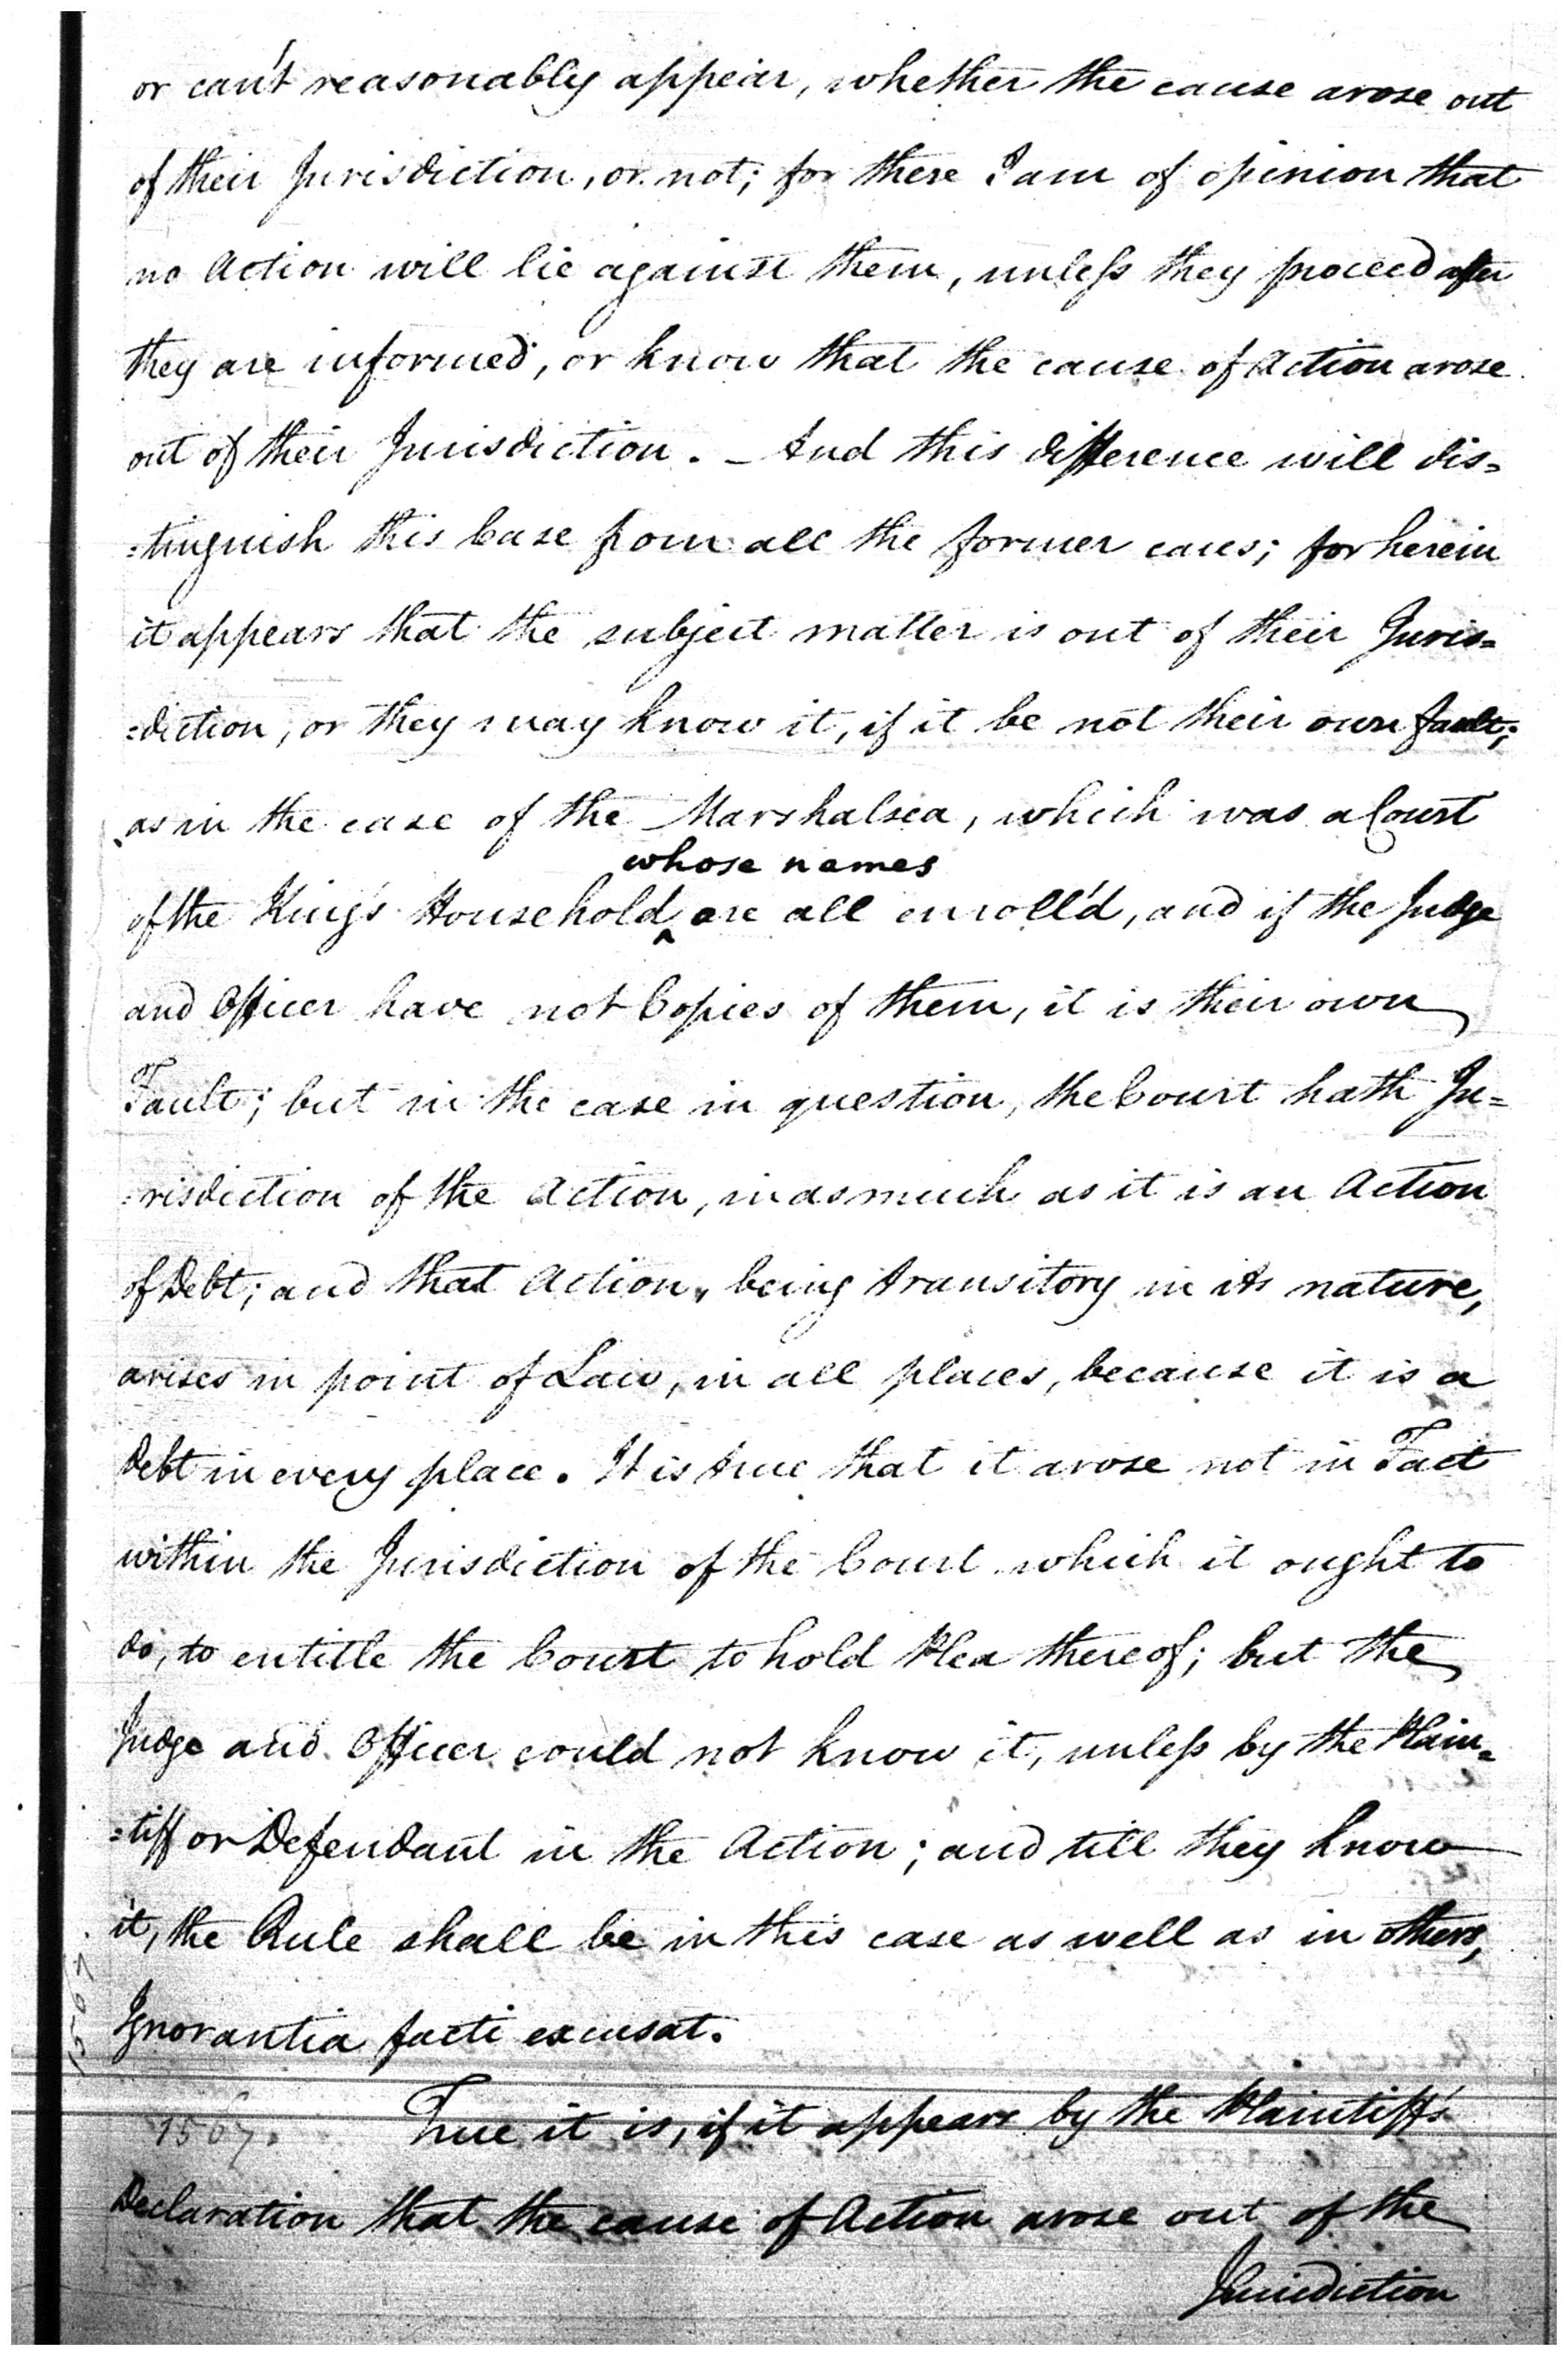 or can't reasonably appear, whether the cause arose out
of their Jurisdiction, or not; for there I am of opinion that
no Action will lie against them, unless they proceed after
they are informed, or know that the cause of Action arose
out of their Jurisdiction. – And this difference will dis=
=tinguish this Case from all the former cases; for herein
it appears that the subject matter is out of their Juris=
=diction, or they may know it, if it be not their own fault;
as in the case of the Marshalsea, which was a Court
whose names
of the King's Household ‸ are all enroll'd, and if the Judge
and Officer have not Copies of them, it is their own
Fault; but in the case in question, the Court hath Ju=
=risdiction of the Action, in as much as it is an Action
of Debt; and that Action, being transitory in its nature,
arises in point of Law, in all places, because it is a
Debt in every place. It is true that it arose not in Fact
within the Jurisdiction of the Court which it ought to
do, to entitle the Court to hold Plea thereof; but the
Judge and Officer could not know it, unless by the Plain=
=tiff or Defendant in the Action; and till they know
it, the Rule shall be in this case as well as in others,
Ignorantia facti excusat.
1567.
True it is, if it appears by the Plaintiff's
Declaration that the cause of Action arose out of the
Jurisdiction